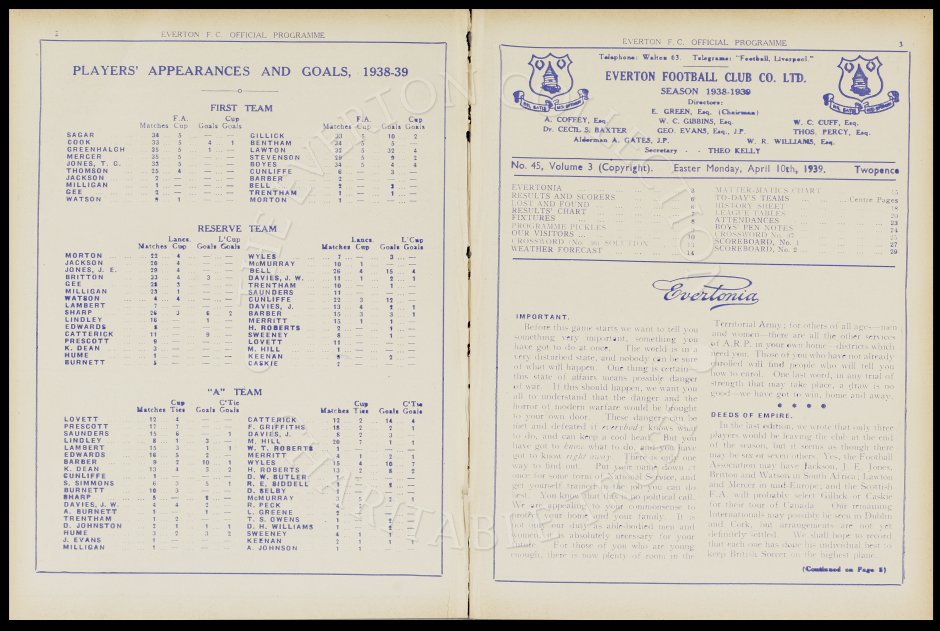 2
EVERTON F.C. OFFICIAL PROGRAMME
PLAYERS' APPEARANCES AND GOALS, 1938-39
FIRST TEAM
F.A. Cup
Matches Cup Goals Goals
SAGAR 38 5 — —
COOK 33 5 4 1
GREENHALGH 35 5 1 —
MERCER 35 5 — —
JONES, T. C. 33 5 — —
THOMSON 25 4 — —
JACKSON 2 — — —
MILLIGAN 1 — — —
GEE 2 — — —
WATSON 9 1 — —
F.A. Cup
Matches Cup Goals Goals
GILLICK 33 5 10 2
BENTHAM 34 5 5 —
LAWTON 32 5 32 4
STEVENSON 29 5 9 2
BOYES 34 5 4 4
CUNLIFFE 6 — 3 —
BARBER 2 — — —
BELL
TRENTHAM 1 — 1 —
MORTON 1 — — —
RESERVE TEAM
Lancs. L'Cup
Matches Cup Goals Goals
MORTON 22 4 — —
JACKSON 26 4 — —
JONES, J. E. 29 4 — —
BRITTON 23 4 3 —
GEE
MILLIGAN 23 1 — —
WATSON 4 4 — —
LAMBERT 7 — — —
SHARP 26 3 6 2
LINDLEY
EDWARDS
CATTERICK 11 — 9 —
PRESCOTT 9
K. DEAN 3
HUME 1
BURNETT
Lancs. L'Cup
Matches Cup Goals Goals
WYLES 7 — 3 —
McMURRAY 10 1 — —
BELL 26 4 15 4
DAVIES, J. W. 11 1 2 1
TRENTHAM 10 — 1 —
SAUNDERS 11 — — —
CUNLIFFE 22 3 12 —
DAVIES, J.
BARBER 15 3 3 1
MERRITT 15 1 1 —
H. ROBERTS 2 — 1 —
SWEENEY
LOVETT 11
M. HILL 1
KEENAN
CASKIE 2
"A" TEAM
Cup C'Tie
Matches Ties Goals Goals
LOVETT 12 4 — —
PRESCOTT 17 7 — —
SAUNDERS 15 6 — 1
LINDLEY 8 1 3 —
LAMBERT 15 3 1 1
EDWARDS 16 5 2 —
BARBER 9 2 10 1
K. DEAN 13 4 3 2
CUNLIFFE 1 — — —
S. SIMMONS 6 3 5 1
BURNETT 10 3 — —
SHARP
DAVIES, J. W. 4 4 2 —
A. BURNETT 1 — 1 —
TRENTHAM 1 2 — —
D. JOHNSTON 2 1 1 1
HUME 3 2 3 2
J. EVANS 1
MILLIGAN 1
Cup C'Tie
Matches Ties Goals Goals
CATTERICK 12 2 14 4
F. GRIFFITHS 18 2 2 1
DAVIES, J. 8 2 3 —
M. HILL 20 7 1 1
W. T. ROBERTS 1
MERRITT 4 1 2 1
WYLES 15 4 10 7
H. ROBERTS 13 2 8 2
D. W. BUTLER
R. E. BIDDELL
D. SELBY
McMURRAY 3
R. PECK 4
L. GREENE 2
T. S. OWENS
D. H. WILLIAMS 1
SWEENEY 4 1 1 —
KEENAN 2 1 1 1
A. JOHNSON 1 1
EVERTON F.C. OFFICIAL PROGRAMME
3
Telephone: Walton 63. Telegrams: "Football, Liverpool."
EVERTON FOOTBALL CLUB CO. LTD.
SEASON 1938-1939
Directors:
E. GREEN, Esq. (Chairman)
A. COFFEY, Esq. W. C. GIBBINS, Esq. W. C. CUFF, Esq.
Dr. CECIL S. BAXTER GEO. EVANS, Esq., J.P. THOS. PERCY, Esq.
Alderman A. GATES, J.P. W. R. WILLIAMS, Esq.
Secretary - THEO KELLY
No. 45, Volume 3 (Copyright). Easter Monday, April 10th, 1939. Twopence
EVERTONIA 3
RESULTS AND SCORERS 6
LOST AND FOUND
RESULTS' CHART
FIXTURES
PROGRAMME PICKLES
OUR VISITORS 10
CROSSWORD (No. 36) SOLUTION
WEATHER FORECAST 14
MATTER-MATICS CHART 15
TO-DAY'S TEAMS Centre Pages
HISTORY SHEET 18
LEAGUE TABLES 20
ATTENDANCES 23
BOYS' PEN NOTES 24
CROSSWORD No. 37
SCOREBOARD, No. 1 27
SCOREBOARD, No. 2 29
Evertonia
IMPORTANT.
Before this game starts we want to tell you
something very important, something you
have got to do at once. The world is in a
very disturbed state, and nobody can be sure
of what will happen. One thing is certain—
this state of affairs means possible danger
of war. If this should happen, we want you
all to understand that the danger and the
horror of modern warfare would be brought
to your own door. These dangers can be
met and defeated if everybody knows what
to do, and can keep a cool head. But you
have got to know what to do, and you have
got to know right away. There is only one
way to find out. Put your name down at
once for some form of National Service, and
get yourself trained in the job you can do
best. You know that this is no political call.
We are appealing to your commonsense to
protect your home and your family. It is
your duty as able-bodied men and
women. It is absolutely necessary for your
future. For those of you who are young
enough, there is now plenty of room in the
Territorial Army; for others of all ages—men
and women—there are all the other services
of A.R.P. in your own home—districts which
need you. Those of you who have not already
enrolled will find people who will tell you
how to enrol. One last word, in any trial of
strength that may take place, a draw is no
good—we have got to win, home and away.
DEEDS OF EMPIRE.
In the last edition I wrote that only three
players would be leaving the club at the end
of the season, but it seems as though there
may be six or seven others. Yes, the Football
Association may have Jackson, J. E. Jones,
Britton and Watson in South Africa; Lawton
and Mercer in mid-Europe; and the Scottish
F.A. will probably select Gillick or Caskie
for their tour of Canada. Our remaining
internationals may possibly be seen in Dublin
and Cork, but arrangements are not yet
definitely settled. We shall hope to record
that each one has done his individual best to
keep British Soccer on the highest plane.
(Continued on Page 5)